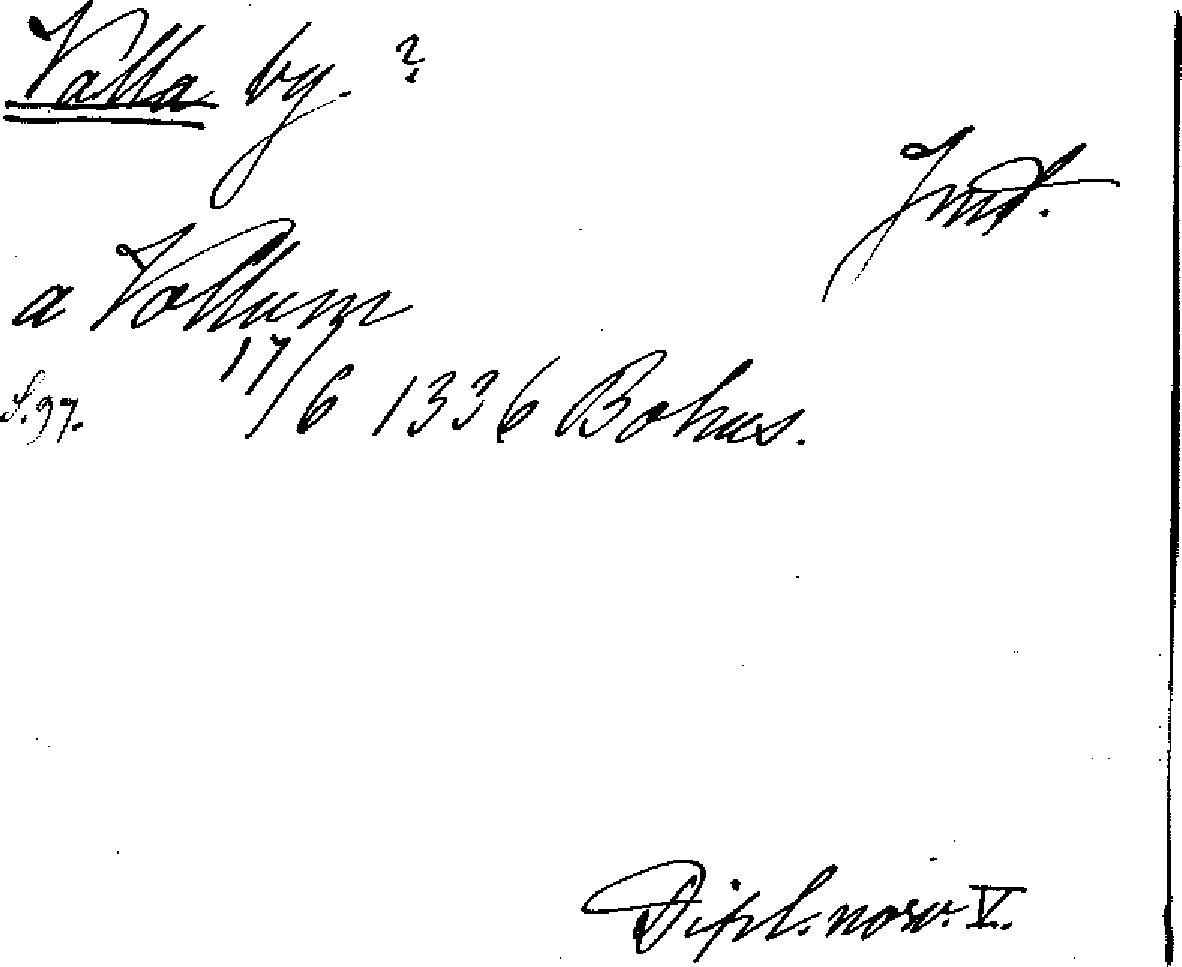 Valla by. ?
Jmt.
a Vallum
S. 97. 17/6 1336 Bohus.
Dipl. norv. V.